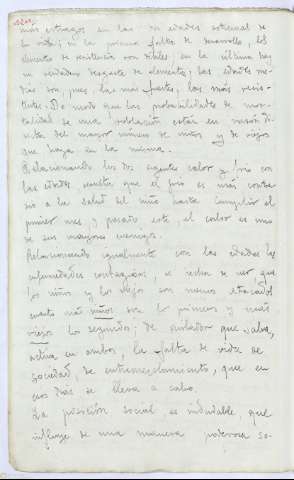 más estragos en las dos edades extremas de
la vida; en la primera falta de desarrollo, los
elementos de resistencia son débiles; en la última hay
un verdadero desgaste de elementos; las edades me-
dias son, pues, las más fuertes, las más resis-
tentes. De modo que las probabilidades de mor-
talidad de una población están en razón di-
recta del mayor número de niños y de viejos
que haya en la misma.
Relacionando los dos agentes calor y frío con
las edades, resulta que el frío es más contra-
rio a la salud del niño hasta cumplir el
primer mes, y pasado este, el calor es uno
de sus mayores enemigos.
Relacionando igualmente con las edades las
enfermedades contagiosas, se echa de ver, que
los niños y los viejos son menos atacados
cuanto más niños son los primeros y más
viejos los segundos; de suerte que
activa en ambos, la falta de vida de
sociedad, de que en
esas días se lleva a cabo.
La posición social, es indudable, que
influye de una manera poderosa so-